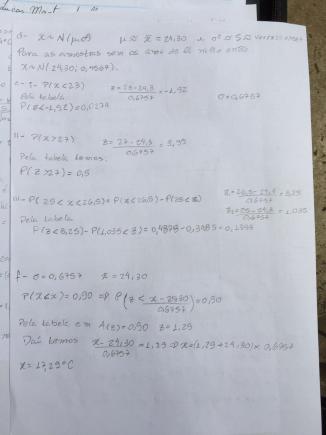 d- X~N(μ,σ²) μ ≈ x̄ = 24,30 e σ² ≈ S² = 
Para as amostras sem
X~N(24,30; 0,4567).
e- i- P(X<23) z = 23-24,3 / 0,6757 = -1,92 σ=0,6757
Pela tabela
P(Z<-1,92) = 0,0274
ii- P(X>27) z = 27-24,3 / 0,6757 = 3,99
Pela tabela temos:
P(Z>27) = 0,5
iii- P(25<X<26,5) = P(X<26,5) - P(25<X) Z₁ = 26,5-24,3 / 0,6757 = 3,25
Pela tabela Z₂ = 25-24,3 / 0,6757 = 1,035
P(Z<3,25) - P(1,035<Z) = 0,4985 - 0,3485 =
f- σ = 0,6757 x̄ = 24,30
P(X<x) = 0,90 ⇒ P(Z < x-24,30 / 0,6757) = 0,90
Pela tabela em A(Z)=0,90 Z = 1,29
Daí temos x-24,30 / 0,6757 = 1,29 ⇒ x=(1,29+24,30)× 0,6757
x = 17,29°C